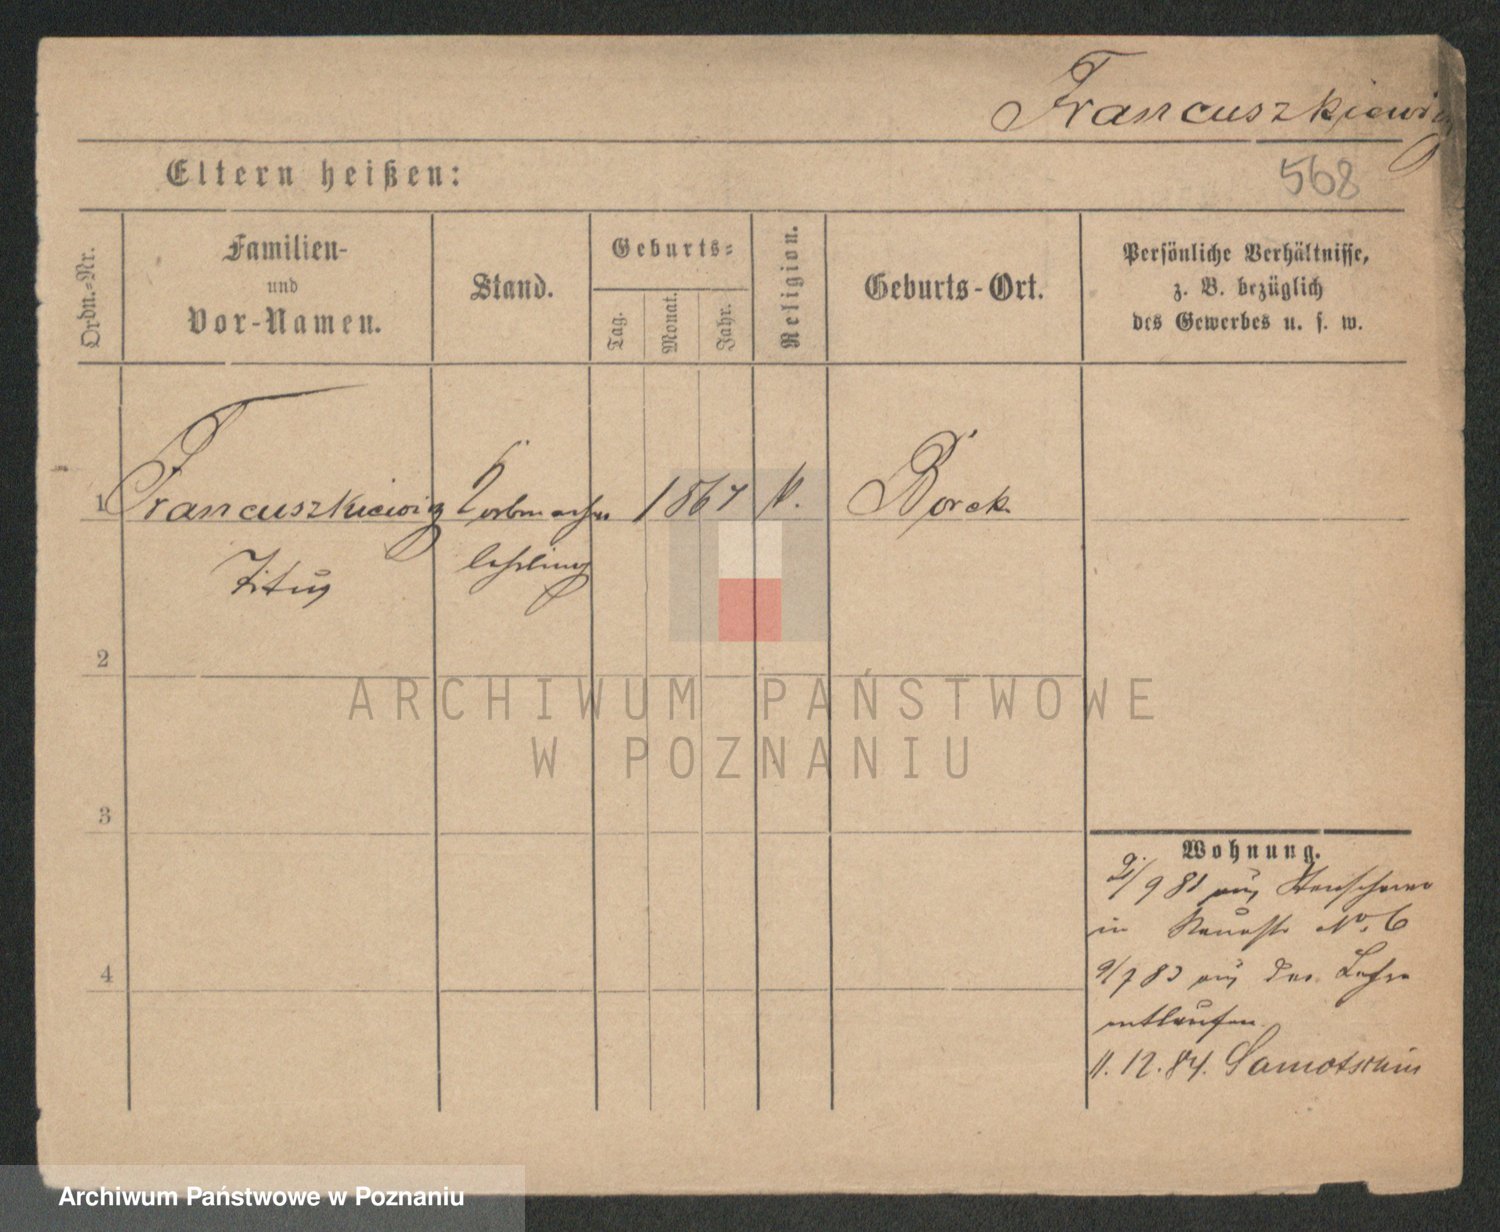 Francuszkiewicz
568
Eltern heißen:
Ordn.-Nr.
Familien-
und
Vor-Namen.
Stand.
Geburts-
Tag.
Monat.
Jahr.
Religion.
Geburts-Ort.
Persönliche Verhältnisse,
z. B. bezüglich
des Gewerbes u. s. w.
1 Francuszkiewicz Korbmacher 1867 k. Borek
Titus lehrling
2
ARCHIWUM PAŃSTWOWE
W POZNANIU
3
Wohnung.
2/9 81 aus
in No. 6
9/7 83 aus der Lehre
4
entlaufen.
11. 12. 84. Samotschin
Archiwum Państwowe w Poznaniu